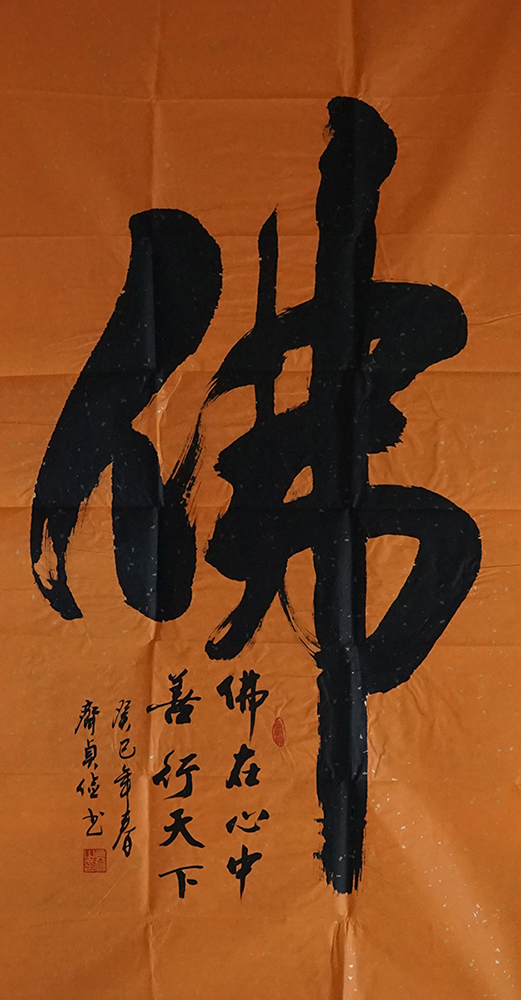 佛
佛在心中
善行天下
癸巳年春
齊貞俭书